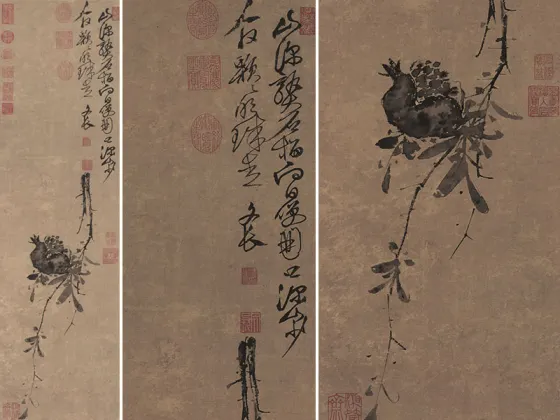 山深熟石榴向日便開口深山少
人收顆顆明珠走
天池
山深熟石榴向日便開口深山少
人收顆顆明珠走
文長